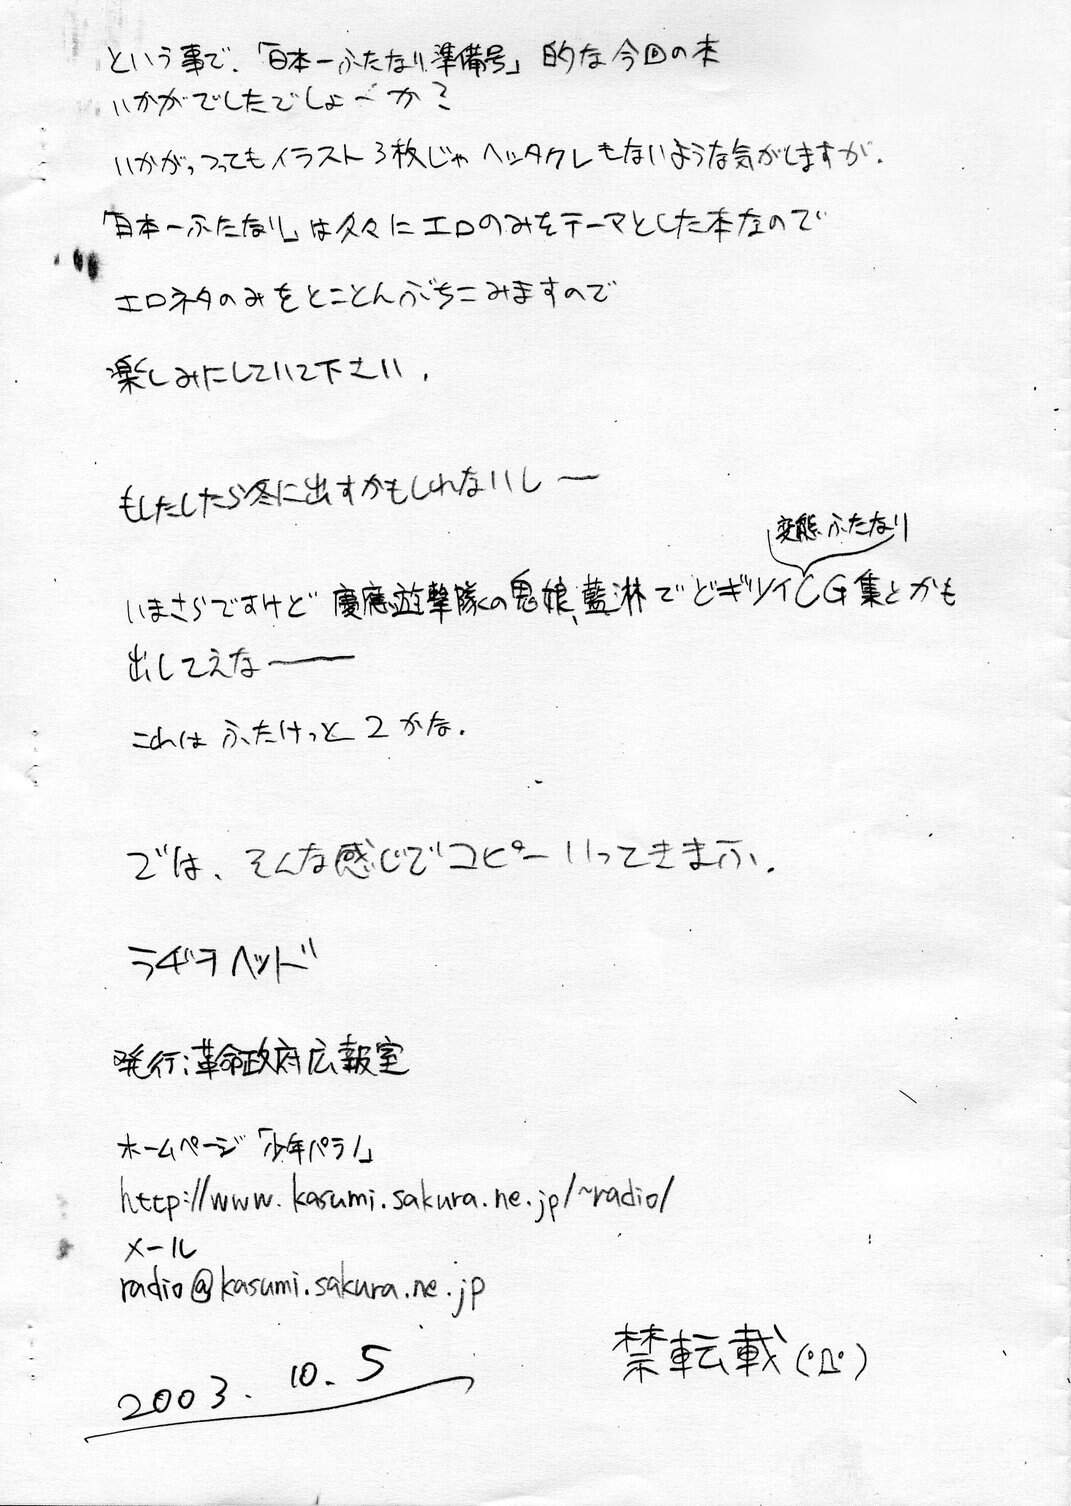 という事で、「日本一ふたなり準備号」的な今回の本
いかがでしたでしょーか？
いかがっつってもイラスト3枚じゃヘッタクレもないような気がしますが.
「日本一ふたなり」は久々にエロのみをテーマとした本なので
エロネタのみをとことんぶちこみますので
楽しみにしていて下さい.
もしたしたら冬に出すかもしれないし〜
変態ふたなり
いまさらですけど慶應遊撃隊の鬼娘、藍淋でどギツイCG集とかも
出してえなー
これはふたけっと2かな.
では、そんな感じでコピーいってきまふ.
ラヂヲヘッド
発行:革命政府広報室
ホームページ「少年パラノ」
http://www.kasumi.sakura.ne.jp/~radio/
メール
radio@kasumi.sakura.ne.jp
2003.10.5
禁転載(゚Д゚)